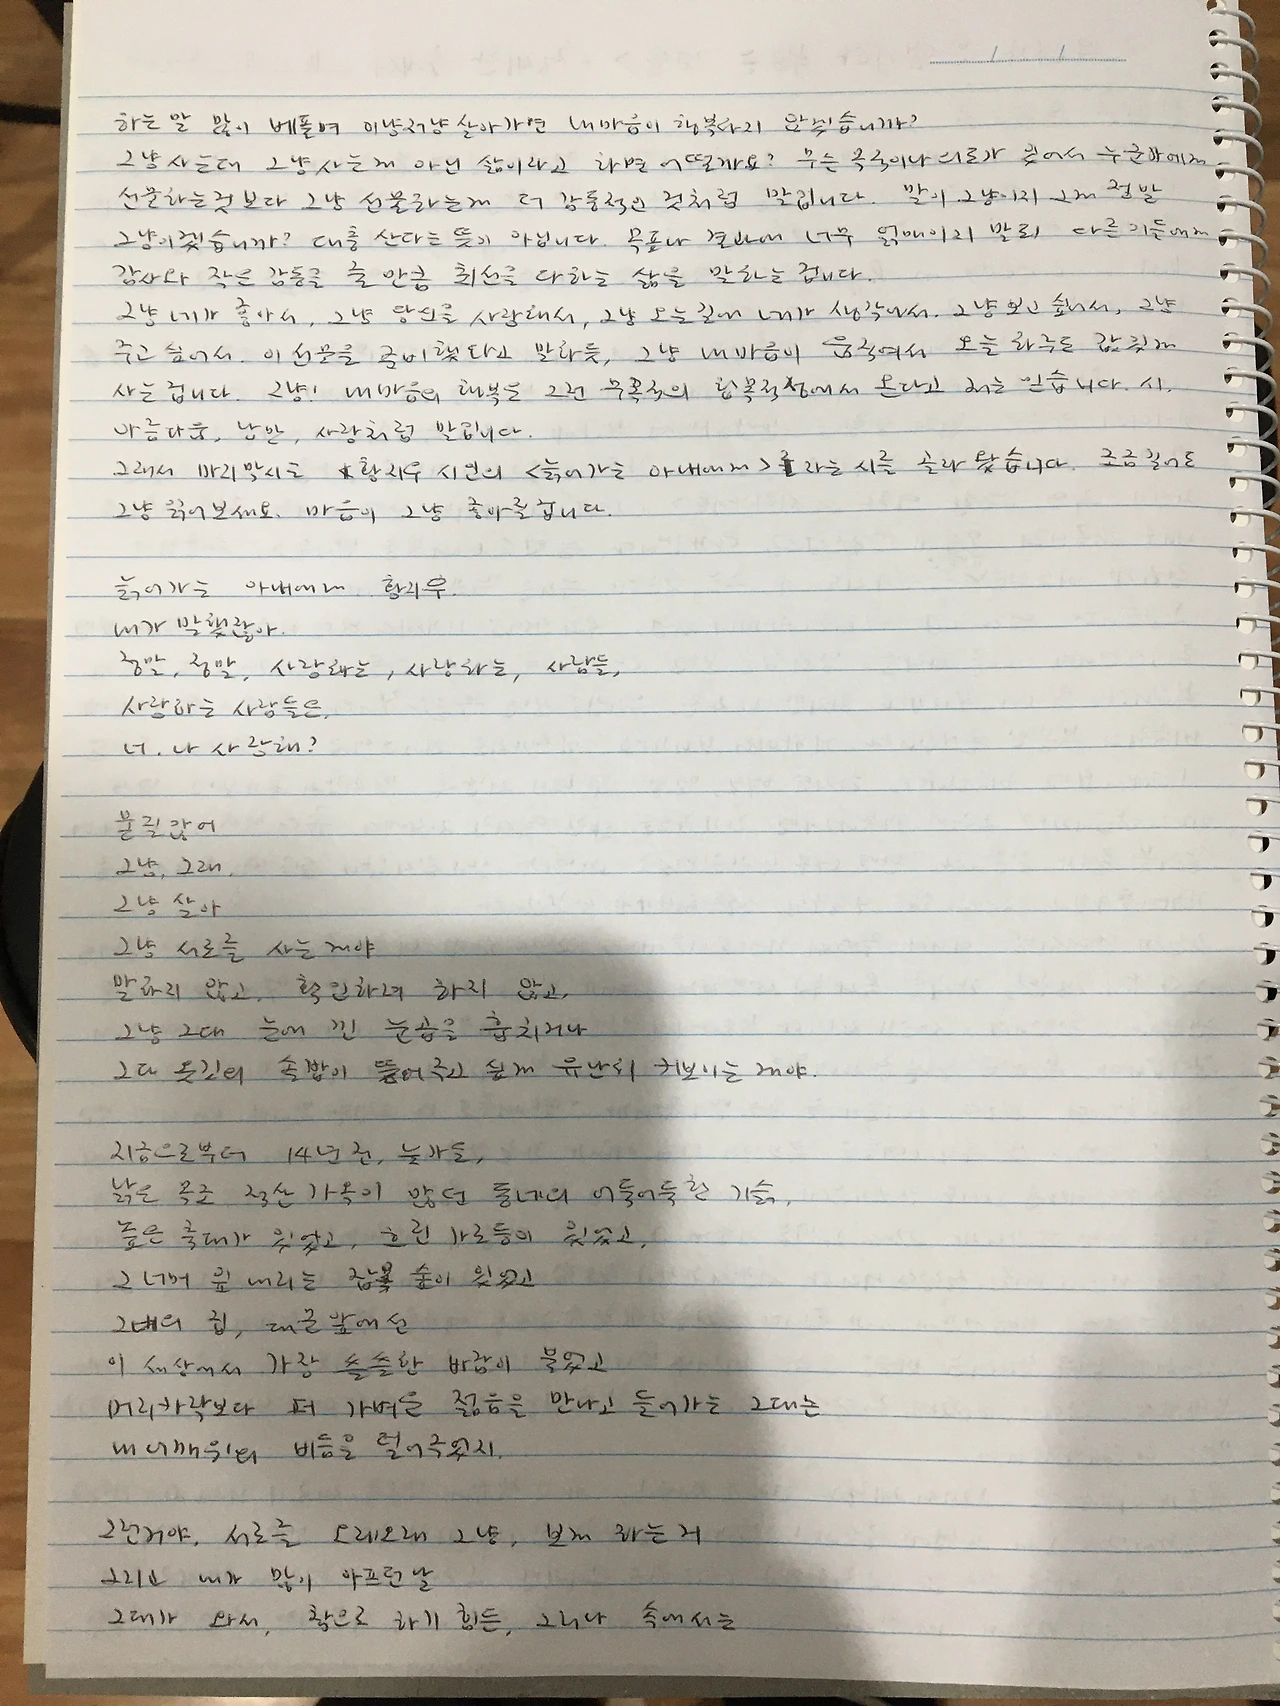 하는 말 많이 베풀며 이냥저냥 살아가면 내마음이 행복하지 않겠습니까?
그냥 사는데 그냥 사는게 아닌 삶이라고 하면 어떨까요? 무슨 목적이나 의도가 있어서 누군가에게
선물하는것 보다 그냥 선물하는게 더 감동적인 것처럼 말입니다. 말이 그냥이지 그게 정말
그냥이겠습니까? 대충 산다는 뜻이 아닙니다. 목표나 결과에 너무 얽매이지 말되 다른 이들에게
감사와 작은 감동을 줄 만큼 최선을 다하는 삶을 말하는 겁니다.
그냥 네가 좋아서, 그냥 당신을 사랑해서, 그냥 오는 길에 네가 생각나서. 그냥 보고 싶어서, 그냥
주고 싶어서. 이 선물을 준비했다고 말하듯, 그냥 내마음이 움직여서 오늘 하루도 값있게
사는 겁니다. 그냥! 내마음의 행복은 그런 무목적의 합목적성에서 온다고 저는 믿습니다. 시,
아름다움, 낭만, 사랑처럼 말입니다.
그래서 마지막시로 황지우 시인의 <늙어가는 아내에게>라는 시를 골라 봤습니다. 조금길어도
그냥 읽어 보세요. 마음이 그냥 좋아질 겁니다.
늙어가는 아내에게 황지우.
내가 말했잖아.
정말, 정말, 사랑하는, 사랑하는, 사람들,
사랑하는 사람들은,
너, 나 사랑해?
묻질 않어
그냥, 그래,
그냥 살아
그냥 서로를 사는 게야
말하지 않고, 확인하려 하지 않고,
그냥 그대 눈에 낀 눈곱을 훔치거나
그대 옷깃의 솔밥이 뜯어주고 싶게 유난히 커보이는 게야.
지금으로부터 14년 전, 늦가을,
낡은 목조 적산 가옥이 많던 동네의 어둑어둑한 기슭,
높은 축대가 있었고, 흐린 가로등이 있었고,
그 너머 잎 내리는 잡목 숲이 있었고
그대의 집, 대문 앞에선
이 세상에서 가장 쓸쓸한 바람이 불었고
머리카락보다 더 가벼운 젊음을 만나고 들어가는 그대는
내 어깨 위의 비듬을 털어주었지.
그런거야, 서로를 오래오래 그냥, 보게 하는 거
그리고 내가 많이 아프던 날
그대가 와서, 참으로 하기 힘든, 그러나 속에서는